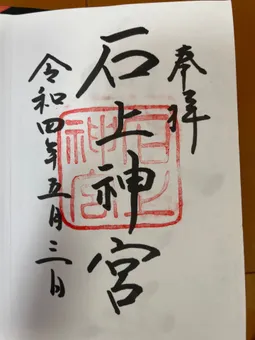 奉拝
石上神宮
令和四年五月三日
石上神宮